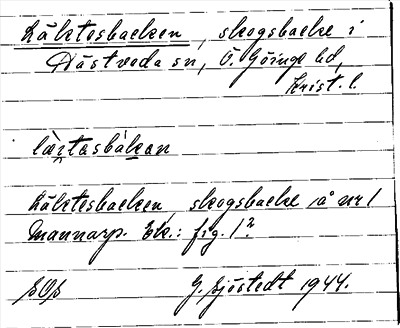 Läktesbacken, skogsbacke i
Västveda sn, Ö. Göinge hd,
Krist. l.
læktasbàkan
Läktesbacken, skogsbacke å nr 1
Mannarp. Ek.: fig. 1
G. Sjöstedt 1944.